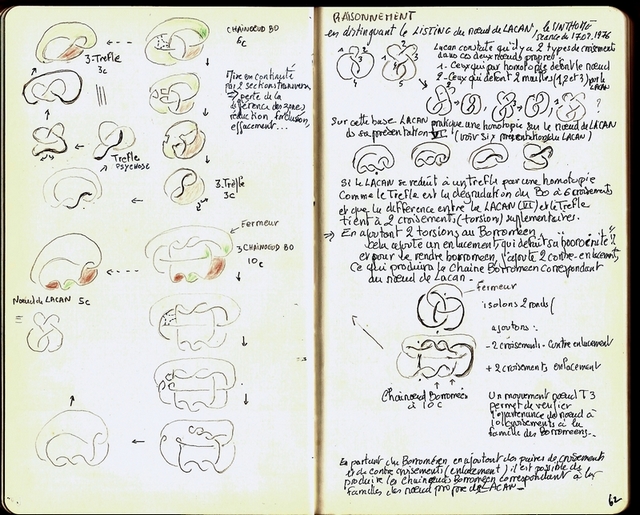 CHAINOEUD BO
6c
3-Trefle
3c
Mise en continuité
par 2 sections transverses
⇒ perte de la
différence des zones
réduction forclusion,
effacement...
Trefle
PSYCHOSE
3.Trefle
3c
Fermeur
3CHAINOEUD BO
10c
Noeud de LACAN 5c
RAISONNEMENT
en distinguant le LISTING du nœud de LACAN, le SINTHOME
séance du 17.02.1976
Lacan constate qu'il y a 2 types de croisement
dans ces deux nœuds propres.
1- Ceux qui par homotopie défont le nœud
2- Ceux qui
Sur cette base LACAN pratique une homotopie sur le nœud de LACAN
ds sa présentation VI (voir Six présentations du LACAN)
Si le LACAN se réduit à un trefle par une homotopie
Comme le Trefle est la dégradation du Bo à 6 croisements
et que la différence entre le LACAN (VI) et le Trefle
tient à 2 croisements (torsion) suplementaires.
⇒ En ajoutant 2 torsions au Borromeen
cela ajoute un enlacement, qui défait sa booroénité
et pour le rendre borromeen, j'ajoute 2 contre-enlacements,
Ce qui produira la Chaine Borromeen correspondant
au nœud de Lacan.
fermeur
isolons 2 ronds (
ajoutons:
- 2 croisements - Contre enlacement
+ 2 croisements enlacement
Chainoeud Borromée
à 10c
Un mouvement noeud T3
permet de verifier
l'appartenance du noeud à
10 croisements à la
famille des Borroméens.
En partant du Borroméen en ajoutant des paires de croisements
et de contre croisements (enlacement) il est possible de
produire les Chainoeuds Borroméen correspondant à la
familles des nœud propre de LACAN
62